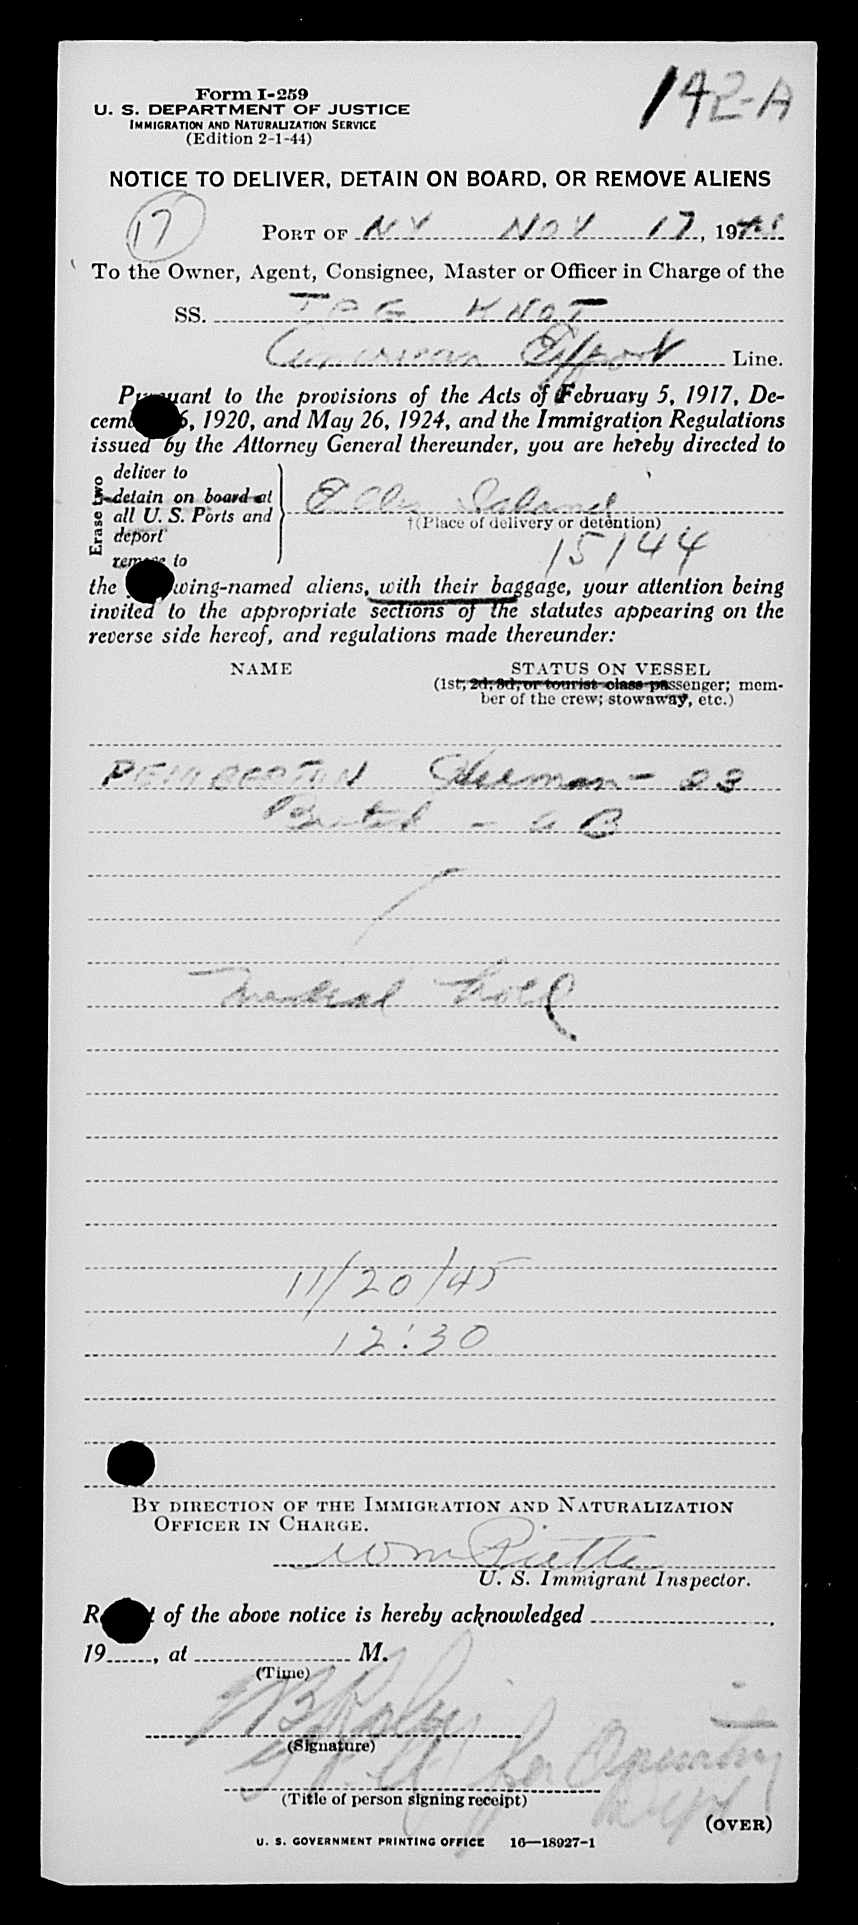 Form I-259
142-A
U. S. DEPARTMENT OF JUSTICE
IMMIGRATION AND NATURALIZATION SERVICE
(Edition 2-1-44)
NOTICE TO DELIVER, DETAIN ON BOARD, OR REMOVE ALIENS
17
PORT OF NY NOV 17, 1945
To the Owner, Agent, Consignee, Master or Officer in Charge of the
SS. TAG KNOT
American Export Line.
Pursuant to the provisions of the Acts of February 5, 1917, De-
cember 6, 1920, and May 26, 1924, and the Immigration Regulations
issued by the Attorney General thereunder, you are hereby directed to
Erase two
deliver to
detain on board at
all U. S. Ports and
deport
remove to
Ellis Island
†(Place of delivery or detention)
15144
the wing-named aliens, with their baggage, your attention being
invited to the appropriate sections of the statutes appearing on the
reverse side hereof, and regulations made thereunder:
NAME STATUS ON VESSEL
(1st, 2d, 3d, or tourist class passenger; mem-
ber of the crew; stowaway, etc.)
PEMBERTON - 23
- AB
Medical hold
11/20/45
12:30
BY DIRECTION OF THE IMMIGRATION AND NATURALIZATION
OFFICER IN CHARGE.
Wm
U. S. Immigrant Inspector.
Receipt of the above notice is hereby acknowledged
19 , at M.
(Time)
(Signature)
for Operating
Dept
(Title of person signing receipt)
(OVER)
U. S. GOVERNMENT PRINTING OFFICE 16—18927-1